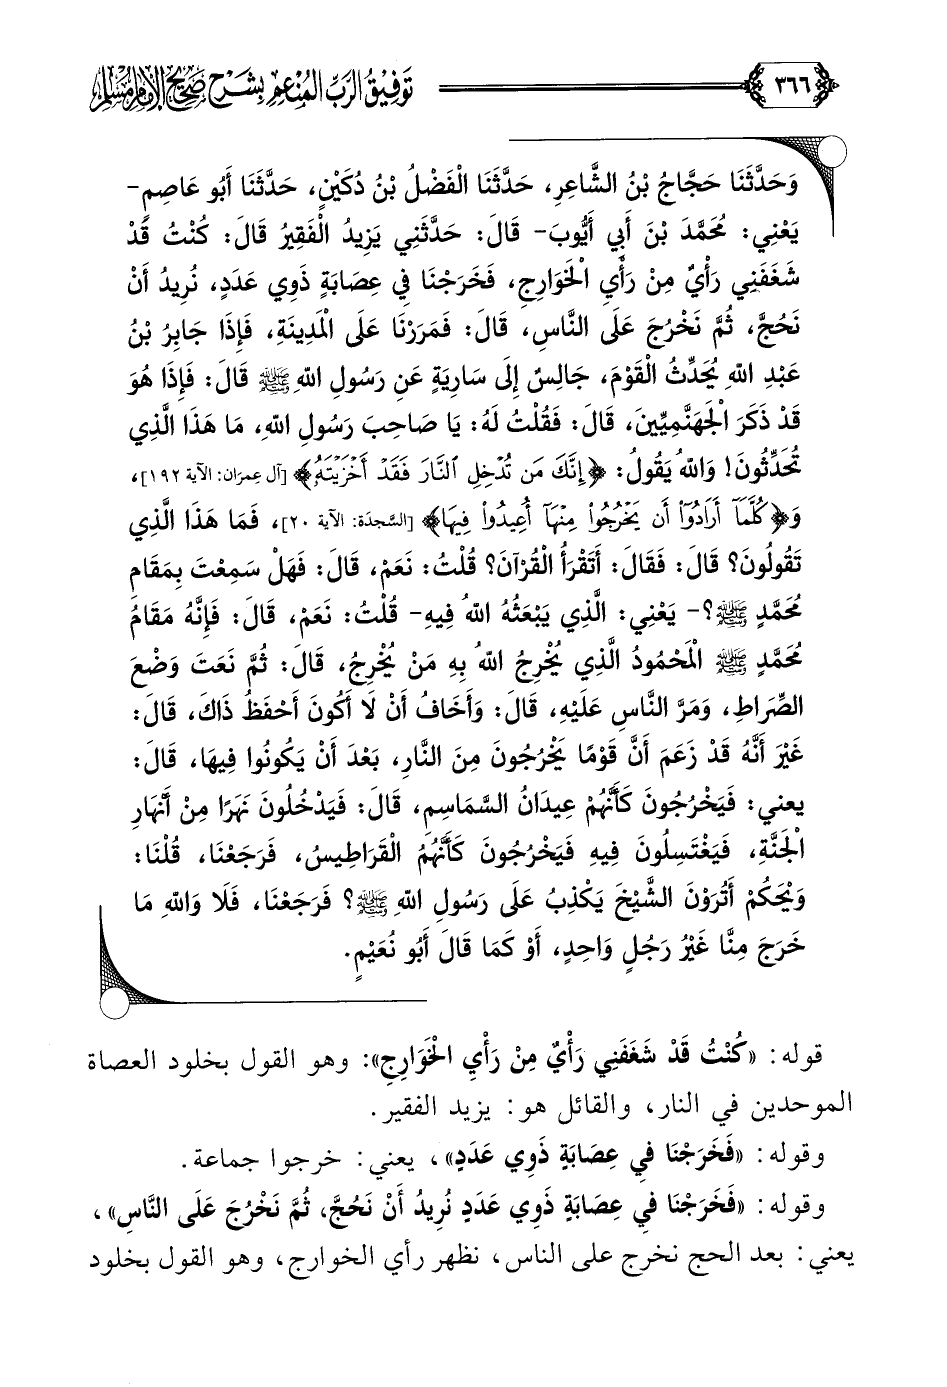 ٣٦٦
توفيق الرب المنعم بشرح صحيح الإمام مسلم
وَحَدَّثَنَا حَجَّاجُ بْنُ الشَّاعِرِ، حَدَّثَنَا الْفَضْلُ بْنُ دُكَيْنٍ، حَدَّثَنَا أَبُو عَاصِمٍ-
يَعْنِي: مُحَمَّدَ بْنَ أَبِي أَيُّوبَ- قَالَ: حَدَّثَنِي يَزِيدُ الْفَقِيرُ قَالَ: كُنْتُ قَدْ
شَغَفَنِي رَأْيٌ مِنْ رَأْيِ الْخَوَارِجِ، فَخَرَجْنَا فِي عِصَابَةٍ ذَوِي عَدَدٍ، نُرِيدُ أَنْ
نَحُجَّ، ثُمَّ نَخْرُجَ عَلَى النَّاسِ، قَالَ: فَمَرَرْنَا عَلَى الْمَدِينَةِ، فَإِذَا جَابِرُ بْنُ
عَبْدِ اللهِ يُحَدِّثُ الْقَوْمَ، جَالِسٌ إِلَى سَارِيَةٍ عَنِ رَسُولِ اللهِ ﷺ قَالَ: فَإِذَا هُوَ
قَدْ ذَكَرَ الْجَهَنَّمِيِّينَ، قَالَ: فَقُلْتُ لَهُ: يَا صَاحِبَ رَسُولِ اللهِ، مَا هَذَا الَّذِي
تُحَدِّثُونَ! وَاللهُ يَقُولُ: ﴿إِنَّكَ مَن تُدْخِلِ ٱلنَّارَ فَقَدْ أَخْزَيْتَهُۥ﴾ [آل عِمرَان: الآية ١٩٢]،
وَ﴿كُلَّمَآ أَرَادُوٓاْ أَن يَخْرُجُواْ مِنْهَآ أُعِيدُواْ فِيهَا﴾ [السَّجدَة: الآية ٢٠]، فَمَا هَذَا الَّذِي
تَقُولُونَ؟ قَالَ: فَقَالَ: أَتَقْرَأُ الْقُرْآنَ؟ قُلْتُ: نَعَمْ، قَالَ: فَهَلْ سَمِعْتَ بِمَقَامِ
مُحَمَّدٍ ﷺ؟- يَعْنِي: الَّذِي يَبْعَثُهُ اللهُ فِيهِ- قُلْتُ: نَعَمْ، قَالَ: فَإِنَّهُ مَقَامُ
مُحَمَّدٍ ﷺ الْمَحْمُودُ الَّذِي يُخْرِجُ اللهُ بِهِ مَنْ يُخْرِجُ، قَالَ: ثُمَّ نَعَتَ وَضْعَ
الصِّرَاطِ، وَمَرَّ النَّاسِ عَلَيْهِ، قَالَ: وَأَخَافُ أَنْ لَا أَكُونَ أَحْفَظُ ذَاكَ، قَالَ:
غَيْرَ أَنَّهُ قَدْ زَعَمَ أَنَّ قَوْمًا يَخْرُجُونَ مِنَ النَّارِ، بَعْدَ أَنْ يَكُونُوا فِيهَا، قَالَ:
يعني: فَيَخْرُجُونَ كَأَنَّهُمْ عِيدَانُ السَّمَاسِمِ، قَالَ: فَيَدْخُلُونَ نَهَرًا مِنْ أَنْهَارِ
الْجَنَّةِ، فَيَغْتَسِلُونَ فِيهِ فَيَخْرُجُونَ كَأَنَّهُمُ الْقَرَاطِيسُ، فَرَجَعْنَا، قُلْنَا:
وَيْحَكُمْ أَتُرَوْنَ الشَّيْخَ يَكْذِبُ عَلَى رَسُولِ اللهِ ﷺ؟ فَرَجَعْنَا، فَلَا وَاللهِ مَا
خَرَجَ مِنَّا غَيْرُ رَجُلٍ وَاحِدٍ، أَوْ كَمَا قَالَ أَبُو نُعَيْمٍ.
قوله: «كُنْتُ قَدْ شَغَفَنِي رَأْيٌ مِنْ رَأْيِ الْخَوَارِجِ»: وهو القول بخلود العصاة
الموحدين في النار، والقائل هو: يزيد الفقير.
وقوله: «فَخَرَجْنَا فِي عِصَابَةٍ ذَوِي عَدَدٍ»، يعني: خرجوا جماعة.
وقوله: «فَخَرَجْنَا فِي عِصَابَةٍ ذَوِي عَدَدٍ نُرِيدُ أَنْ نَحُجَّ، ثُمَّ نَخْرُجَ عَلَى النَّاسِ»،
يعني: بعد الحج نخرج على الناس، نظهر رأي الخوارج، وهو القول بخلود